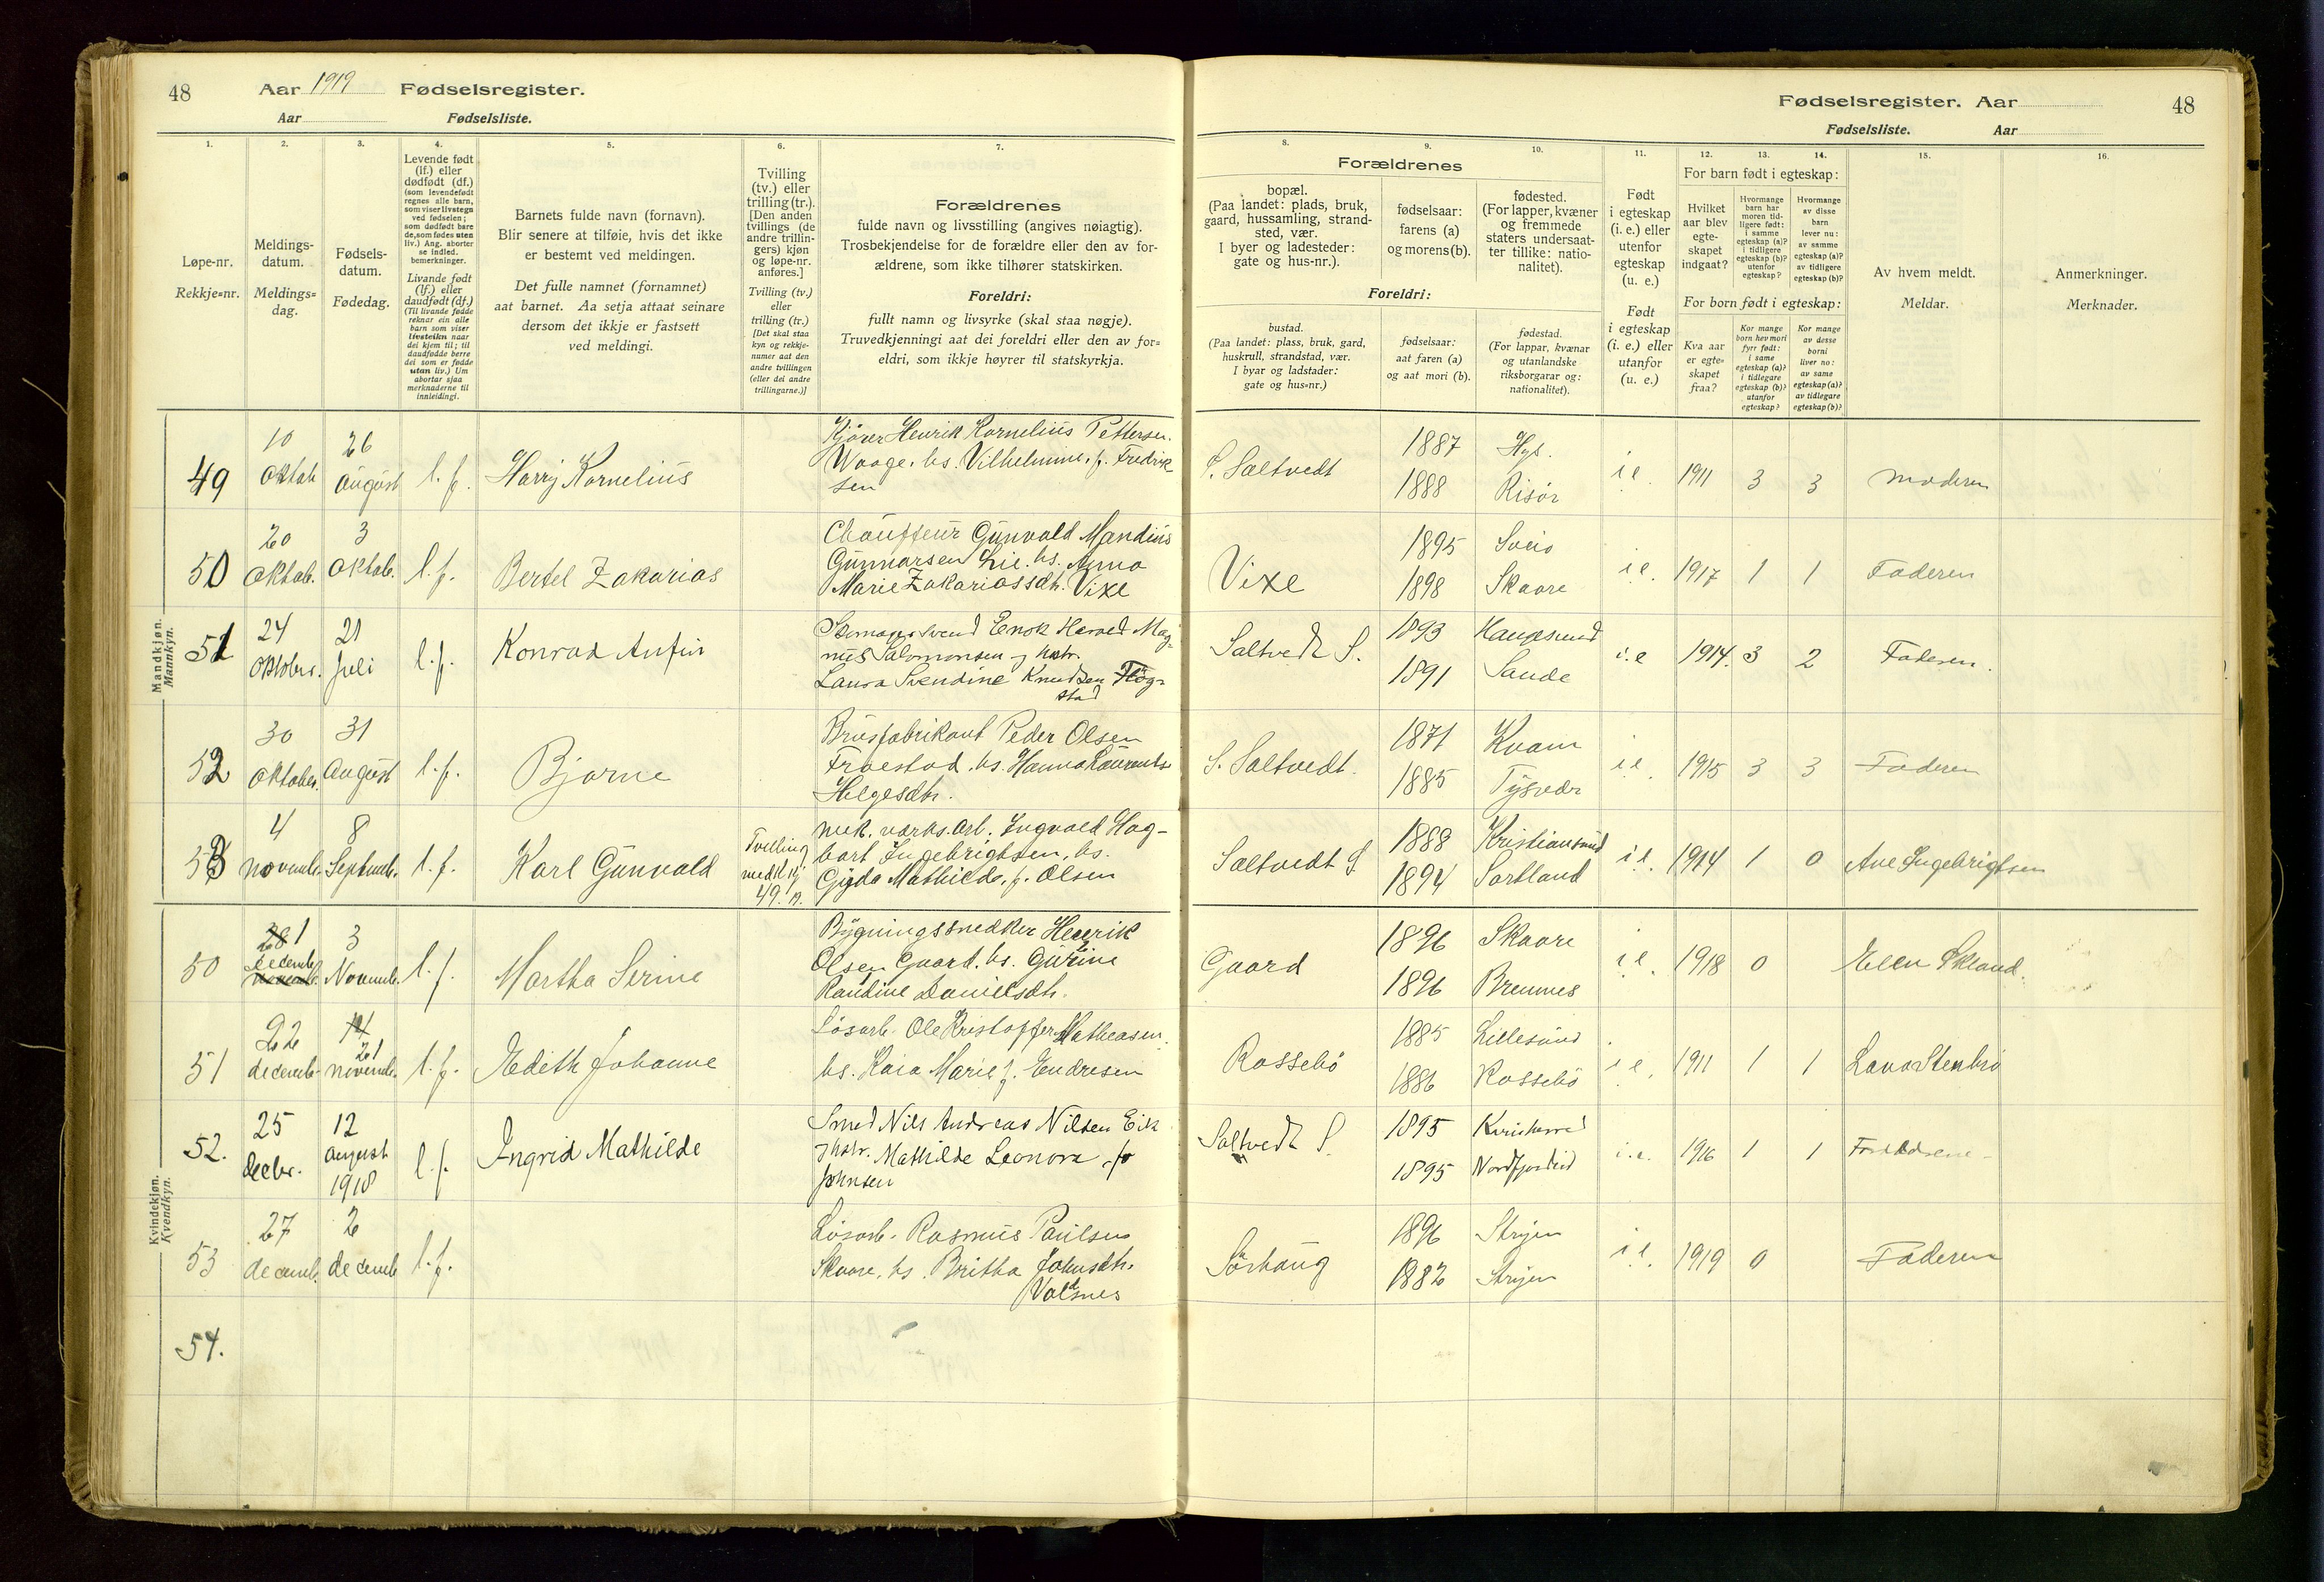 48
Aar 1919 Fødselsregister.
Aar Fødselsliste.
1.
2.
3.
4.
5.
6.
7.
Løpe-nr.
Rekkje=nr.
Meldings-
datum.
Meldings=
dag.
Fødsels-
datum.
Fødedag.
Levende født
(lf.) eller
dødfødt (df.)
(som levendefødt
regnes alle barn,
som viser livstegn
ved fødselen;
som dødfødt bare
de, som fødes uten
liv.) Ang. aborter
se indled.
bemerkninger.
Livande født
(lf.) eller
daudfødt (df.)
(Til livande fødde
reknar ein alle
barn som viser
livsteikn naar
dei kjem til; til
daudfødde berre
dei som er fødde
utan liv.) Um
abortar sjaa
merknaderne til
innleidingi.
Barnets fulde navn (fornavn).
Blir senere at tilføie, hvis det ikke
er bestemt ved meldingen.
Det fulle namnet (fornamnet)
aat barnet. Aa setja attaat seinare
dersom det ikkje er fastsett
ved meldingi.
Tvilling
(tv.) eller
trilling (tr.).
[Den anden
tvillings (de
andre trillin-
gers) kjøn
og løpe-nr.
anføres.]
Tvilling (tv.)
eller
trilling (tr.)
[Det skal staa
kyn og rekkje-
numer aat den
andre tvillingen
(eller dei andre
trillingarne.)]
Forældrenes
fulde navn og livsstilling (angives nøiagtig).
Trosbekjendelse for de forældre eller den av for-
ældrene, som ikke tilhører statskirken.
Foreldri:
fullt namn og livsyrke (skal staa nøgje).
Truvedkjenningi aat dei foreldri eller den av for=
eldri, som ikkje høyrer til statskyrkja.
Mandkjøn.
Mannkyn.
49
10
Oktob
26
August
l. f.
Harry Kornelius
Kjører Henrik Kornelius Pettersen
Waage. hs. Vilhelmine, f. Fredrik
sen
50
20
Oktob.
3
Oktob.
l. f.
Bertel Zakarias
Chauffeur Gunvald Mandius
Gunnarsen Lie. hs. Anna
Marie Zakariassdtr. Vixe
51
24
Oktober.
21
Juli
l. f.
Konrad Anfin
Enok Harald Mag-
nus Salomonsen og hstr.
Laura Svendine Knudsen Høg-
stad
52
30
Oktober.
31
August
l. f.
Bjarne
Brusfabrikant Peder Olsen
Fraestad. hs. Hanna Laurentse
Helgesdtr.
53
4
Novemb.
8
Septemb.
l. f.
Karl Gunvald
Tvilling
med kj
49.
mek. værks. arb. Ingvald Hag-
bart Ingebrigtsen, hs.
Gyda Mathilde, f. Olsen
Kvindekjøn.
Kvendkyn.
50
28 1
decemb
novemb.
3
Novemb.
l. f.
Martha Serine
Bygningssnedker Henrik
Olsen Gaard. hs. Gurine
Randine Danielsdtr.
51
22
decemb.
14
21
novemb.
l. f.
Edith Johanne
Løsarb. Ole Kristoffer Matheasen
hs. Kaia Marie f. Endresen
52.
25
Decbr.
12
august
1918
l. f.
Ingrid Mathilde
Smed Nils Andreas Nilsen Eik
og hstr. Mathilde Leonora f.
Johnsen
53
27
decemb.
2
decemb
l. f.
Løsarb. Rasmus Paulsen
Skaare, hs. Britha Johnsdtr.
Valdsnes
54.
Fødselsregister. Aar
48
Fødselsliste. Aar
8.
9.
10.
11.
12.
13.
14.
15.
16.
Forældrenes
bopæl.
(Paa landet: plads, bruk,
gaard, hussamling, strand-
sted, vær.
I byer og ladesteder:
gate og hus-nr.).
fødselsaar:
farens (a)
og morens (b).
fødested.
(For lapper, kvæner
og fremmede
staters undersaat-
ter tillike: natio-
nalitet).
Foreldri:
bustad.
(Paa landet: plass, bruk, gard,
huskrull, strandstad, vær.
I byar og ladstader:
gate og hus-nr.)
fødselsaar:
aat faren (a)
og aat mori (b).
fødestad.
(For lappar, kvænar
og utanlandske
riksborgarar og:
nationalitet).
Født
i egteskap
(i. e.) eller
utenfor
egteskap
(u. e.)
Født
i egteskap
(i. e.) eller
utanfor
(u. e.)
For barn født i egteskap:
Hvilket
aar blev
egte-
skapet
indgaat?
Hvormange
barn har
moren tid-
ligere født:
i samme
egteskap (a)?
i tidligere
egteskap (b)?
utenfor
egteskap?
Hvormange
av disse
barn
lever nu:
av samme
egteskap (a)?
av tidligere
egteskap (b)?
For born født i egteskap:
Kva aar
er egte=
skapet
fraa?
Kor mange
born hev mori
fyrr født:
i same
egteskap (a)?
i tidlegare
egteskap (b)?
utanfor
egteskap?
Kor mange
av desse
borni
liver no:
av same
egteskap (a)?
av tidlegare
egteskap (b)?
Av hvem meldt.
Meldar.
Anmerkninger.
Merknader.
S. Saltvedt
1887
1888
Risør
i e.
1911
3
3
Moderen
Vixe
1895
1898
Sveio
Skaare
i e.
1917
1
1
Faderen
Saltvedt S.
1893
1891
Haugesund
Sande
i. e
1914.
3
2
Faderen.
S. Saltvedt.
1871
1885
Kvam
Tysvedr
i e.
1915
3
3
Faderen
Saltvedt S
1888
1894
Kristiansund
Sortland
i e.
1914
1
0
Ane Ingebrigtsen
Gaard
1896
1896
Skaare
Bremnes
i e.
1918
0
Ellen Skland.
Rossebö
1885
1886
Lillesund
Rossebö
i e.
1911
1
1
Lava Stenbrö
Saltvedt S.
1895
1895
Nordfjordeid
i. e.
1916
1
1
Forældrene
Sørhaug
1896
1882
Stryn
Stryn
i e.
1919
0
Faderen